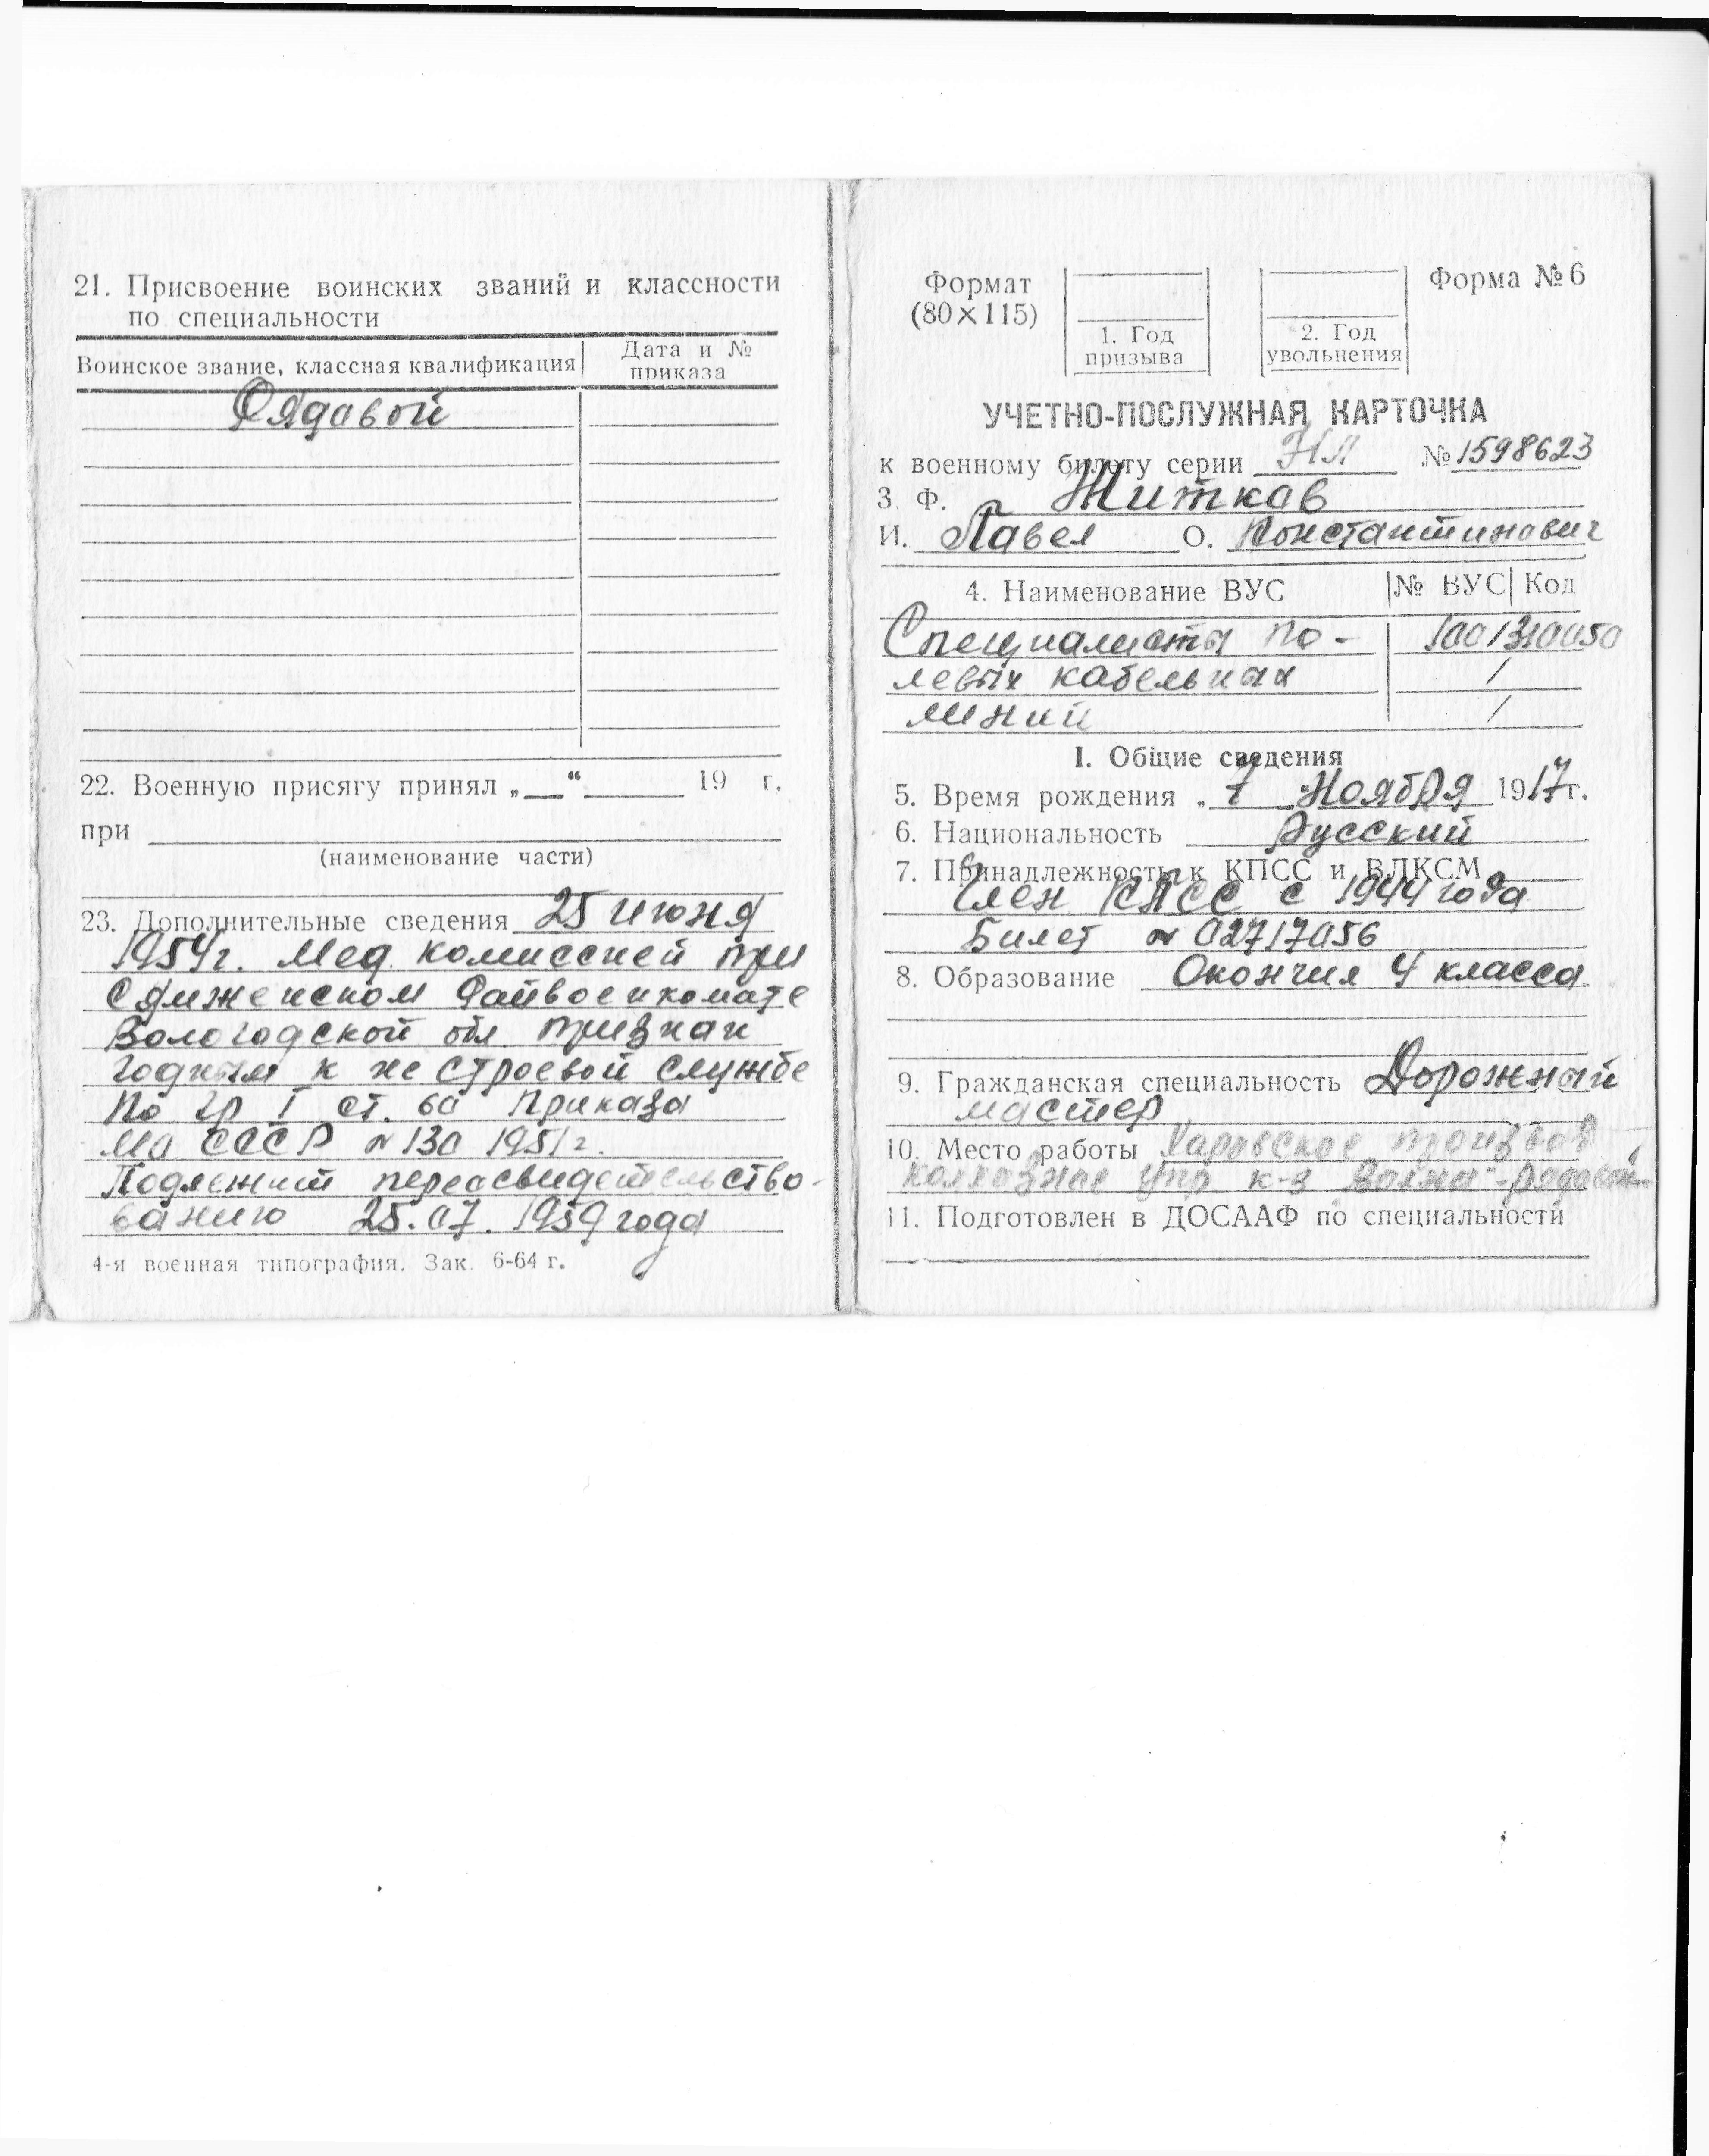 21. Присвоение воинских званий и классности
по специальности
Воинское звание, классная квалификация
Дата и №
приказа
Рядовой
22. Военную присягу принял „ “ 19 г.
при
(наименование части)
23. Дополнительные сведения 25 июня
1954г. Мед. комиссией при
Сямженском Райвоенкомате
Вологодской обл. признан
годным к не строевой службе
по гр I ст. 60 Приказа
МО СССР № 130 1951г.
Подлежит переосвидетельство-
ванию 25.07.1959 года
4-я военная типография. Зак. 6-64 г.
Формат
(80×115)
1. Год
призыва
2. Год
увольнения
Форма № 6
УЧЕТНО-ПОСЛУЖНАЯ КАРТОЧКА
к военному билету серии НЛ № 1598623
3. Ф. Житков
И. Павел О. Константинович
4. Наименование ВУС № ВУС Код
Специалисты по-
левых кабельных /
линий /
I. Общие сведения
5. Время рождения „ 7 " Ноября 1917г.
6. Национальность Русский
7. Принадлежность к КПСС и ВЛКСМ
Член КПСС с 1944 года
Билет № 02717056
8. Образование Окончил 4 класса
9. Гражданская специальность Дорожный
мастер
10. Место работы Харовское произвов
колхозное упр. к-з Волна - рядовой
11. Подготовлен в ДОСААФ по специальности